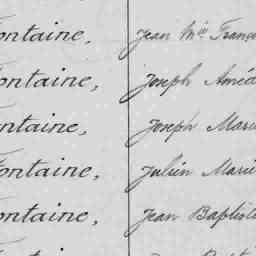 ontaine, Jean Mie Franç
ontaine, Joseph Améd
ontaine, Joseph Marie
ontaine, Julien Marie
ontaine, Jean Baptiste